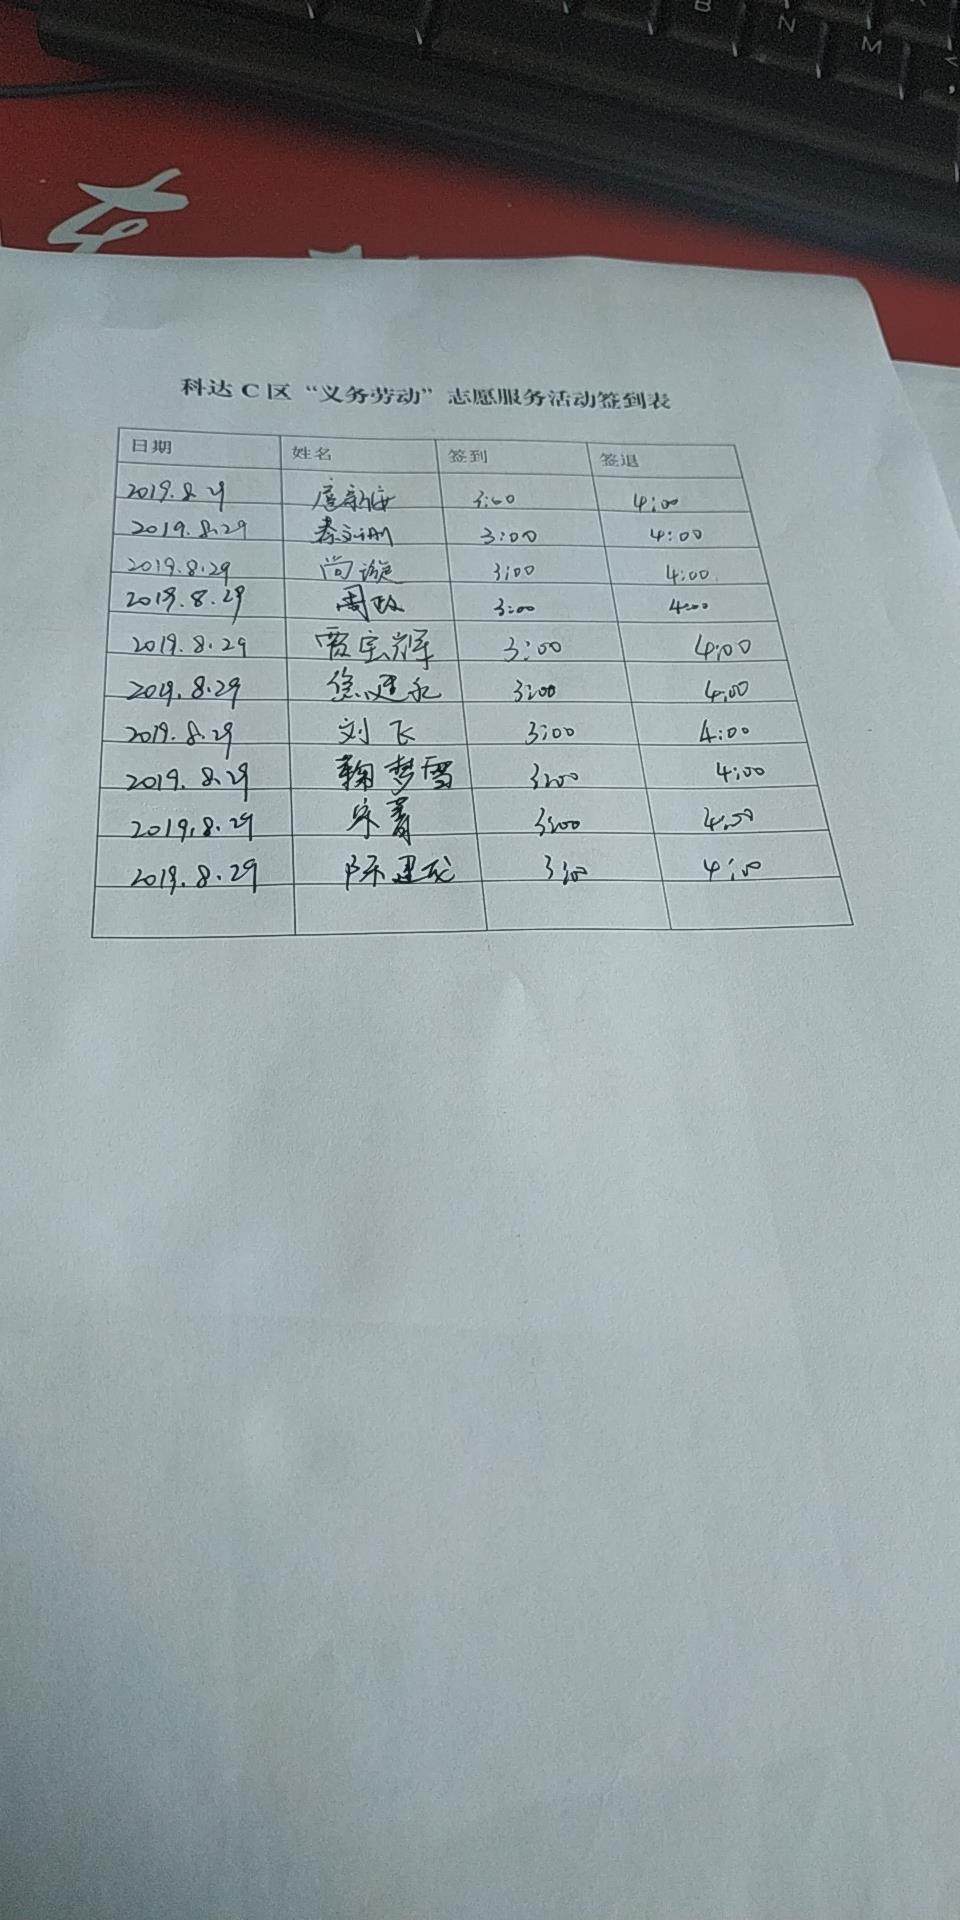 B N M
科达 C 区 “义务劳动” 志愿服务活动签到表
日期 姓名 签到 签退
2019.8.29 3:00 4:00
2019.8.29 3:00 4:00
2019.8.29 尚璇 3:00 4:00
2019.8.29 周政 3:00 4:00
2019.8.29 贾宝辉 3:00 4:00
2019.8.29 徐建永 3:00 4:00
2019.8.29 刘飞 3:00 4:00
2019.8.29 鞠梦雪 3:00 4:00
2019.8.29 宋菁 3:00 4:00
2019.8.29 陈建龙 3:00 4:00